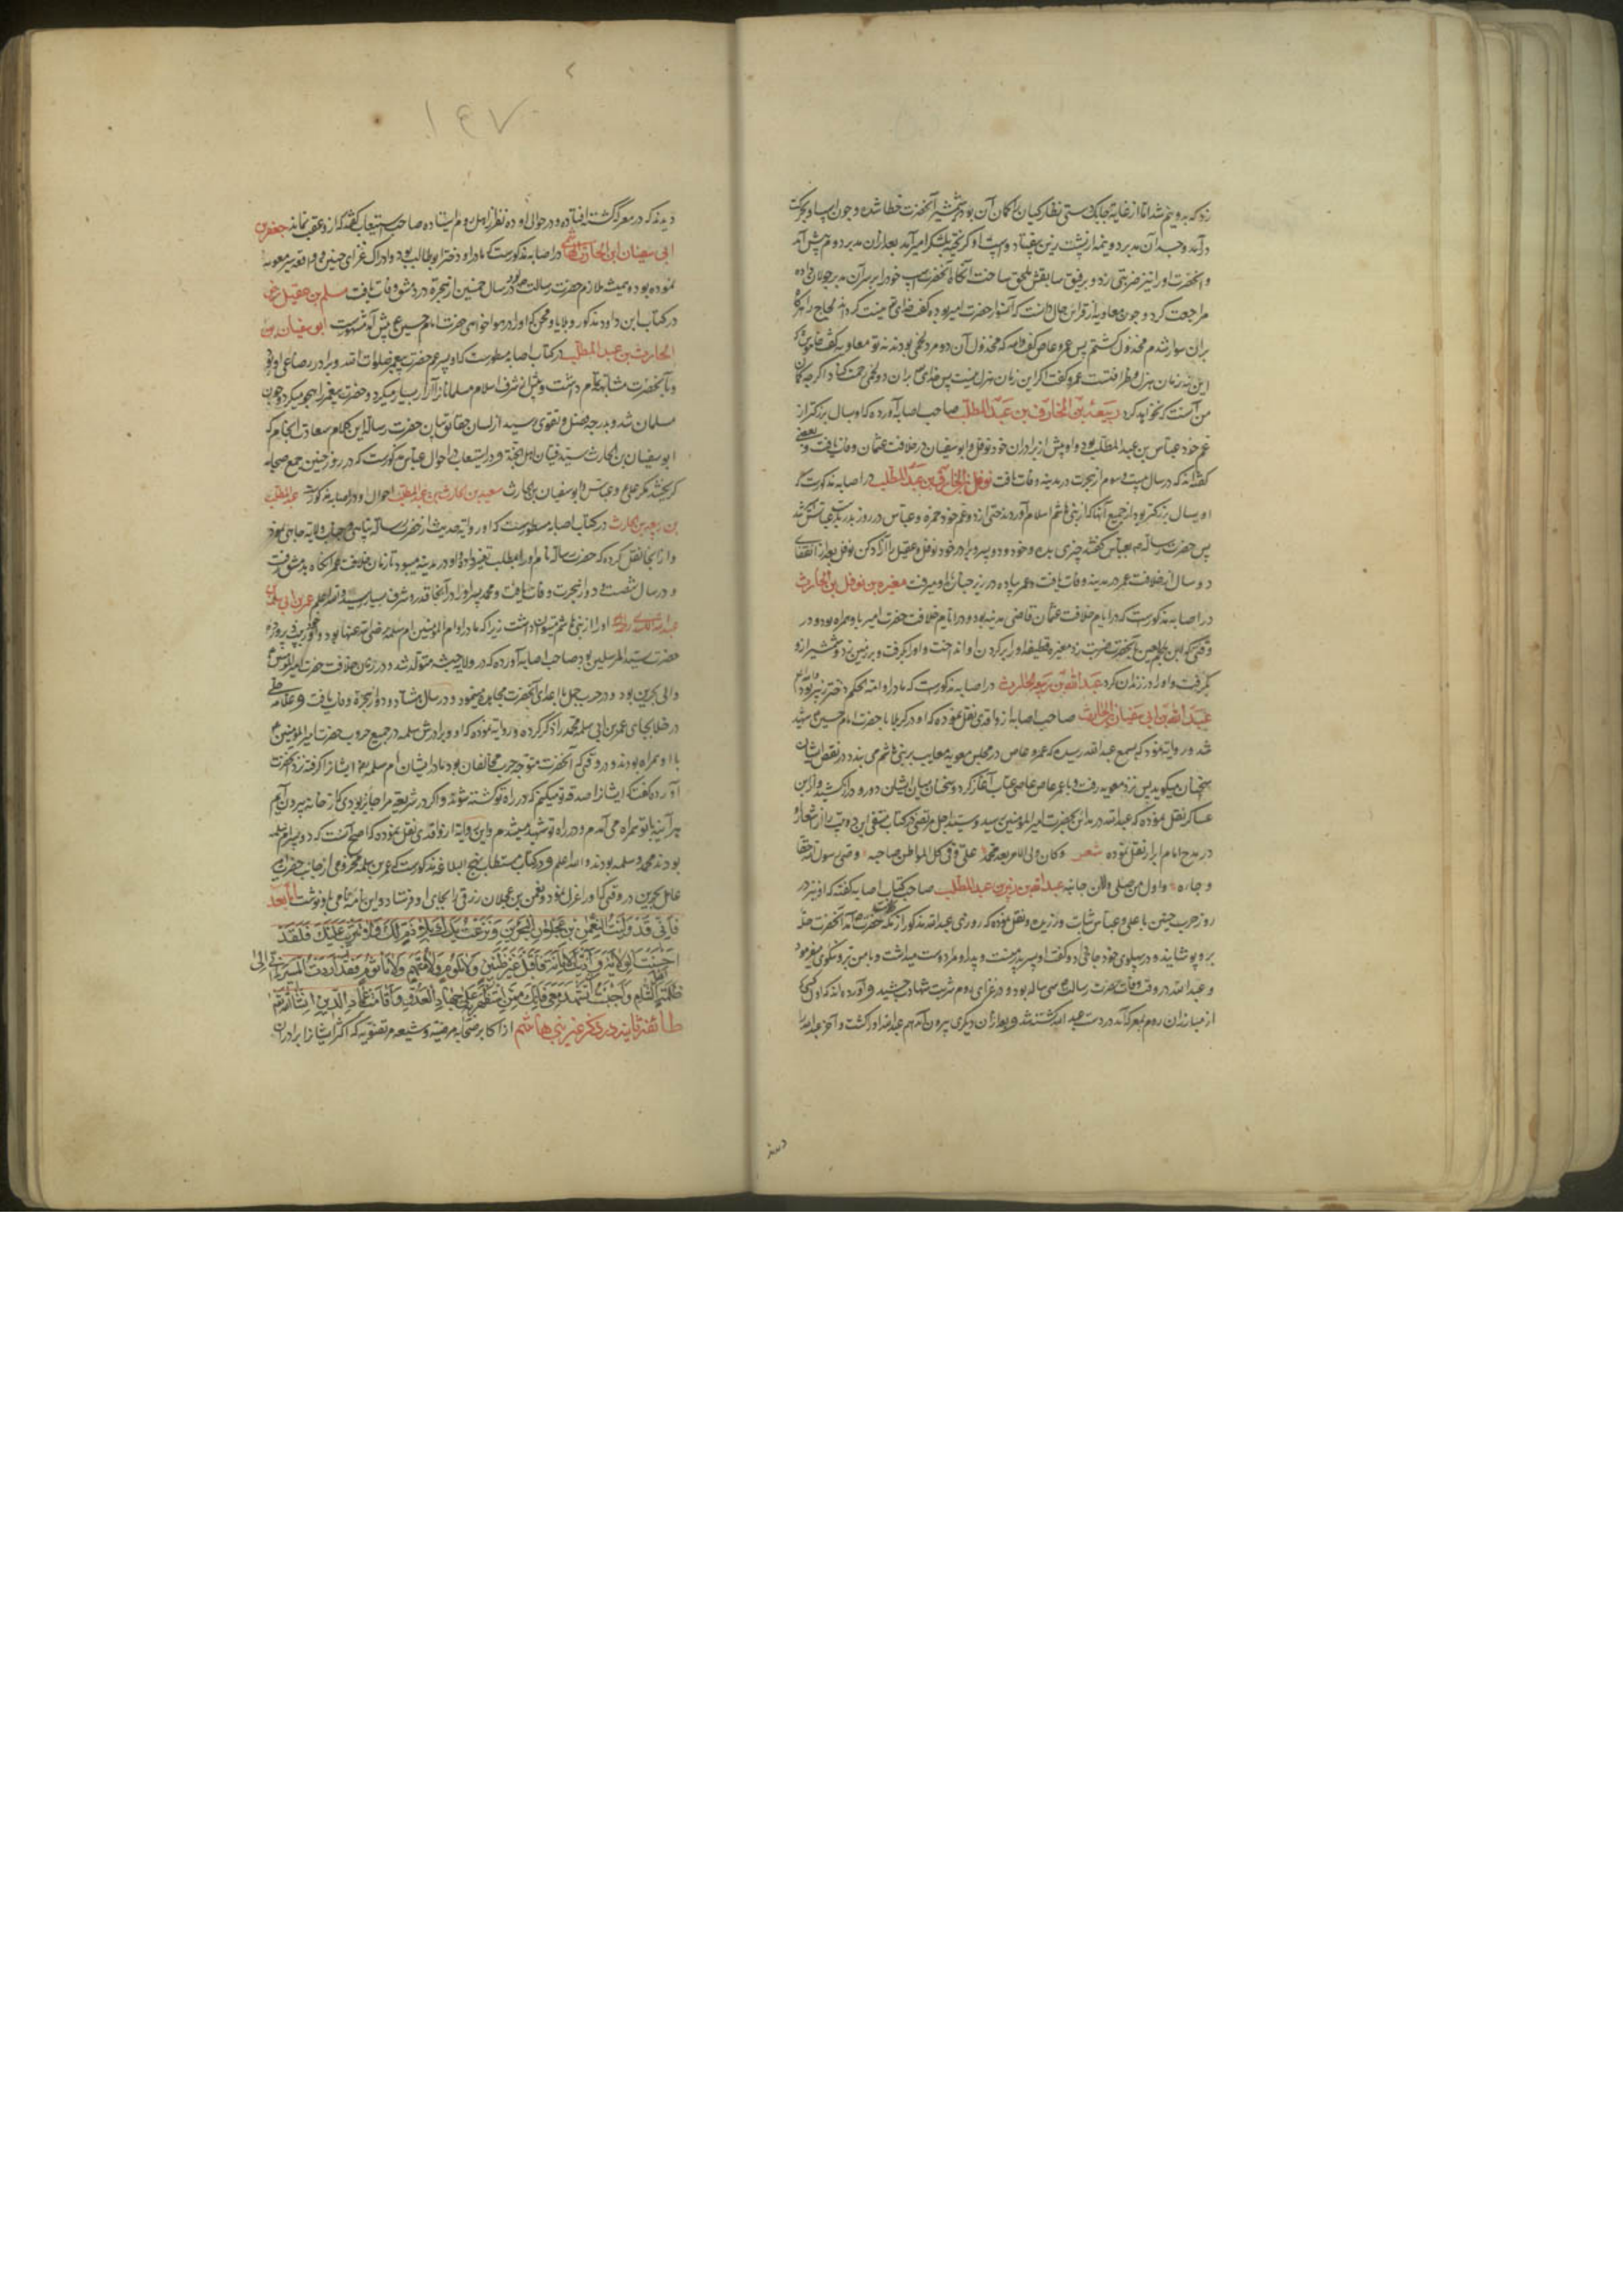 زد که بدو نیم شد اما از غایة چابک دستی نظارکیان را کمان آن بود که شمشیر آنحضرت خطا شده و چون اسپ او بحرکت
درآمد و جسد آن مدبر دو نیمه از پشت زین بیفتاد و اسب او کریخته بلشکر امیر آمد بعد از آن مدبر دوم پیش آمد
و آنحضرت او را نیز ضربتی زد و برفیق سابقش ملحق ساخت آنکاه آنحضرت اسپ خود را بر سر آن مدبر جولان داده
مراجعت کرد و چون معاویه از قراین حال دانست که آن سوار حضرت امیر بوده کفت خدای قبیح کرداند لجاج را هرکاه
بران سوار شدم مخذول کشتم پس عمرو عاص کفت والله که مخذول آن دو مرد لخمی بودند نه تو معاویه کفت خاموش که
این نه زمان هزل و ظرافتست عمرو کفت اکر این زمان هزل نیست پس خدای بر آن دو لخمی رحمت کناد اکرچه کمان
من آنست که نخواهد کرد ربیعة بن الحارث بن عبد المطلب صاحب اصابه آورده که او بسال بزرکتر از
عم خود عباس بن عبد المطلب بود و او پیش از برادران خود نوفل و ابو سفیان در خلافت عثمان وفات یافت و بعضی
کفته‌اند که در سال بیست و سوم از هجرت در مدینه وفات یافت نوفل بن الحارث بن عبد المطلب در اصابه مذکورست که
او بسال بزرکتر بود از جمیع آنها که از بنی هاشم اسلام آوردند حتی از دو عم خود حمزه و عباس در روز بدر
پس حضرت رسالت بعباس کفتند چیزی بده و خود و دو پسر برادر خود نوفل و عقیل را آزاد کن نوفل بعد از انقضای
دو سال از خلافت عمر در مدینه وفات یافت و عمر پیاده در زیر جنازه او میرفت مغیره بن نوفل بن الحارث
در اصابه مذکورست که در ایام خلافت عثمان قاضی مدینه بود و در ایام خلافت حضرت امیر با او همراه بود و در
وقتی که ابن ملجم لعین بآنحضرت ضربت زد مغیره قطیفه او را بر کردن او انداخت و او را بکرفت و بر زمین زد و شمشیر ازو
بکرفت و او را در زندان کرد عبد الله بن ربیعه الحارث در اصابه مذکورست که مادر او امة الحکم دختر زبیر بود
عبد الله بن ابی سفیان بن الحارث صاحب اصابه از واقدی نقل نموده که او در کربلا با حضرت امام حسین شهید
شد و روایة نموده که بسمع عبد الله رسید که عمرو عاص در مجلس معویه معایب بر بنی هاشم می بندد و در نقص ایشان
سخنان میکوید پس نزد معویه رفت و با عمر عاص عاصی عتاب آغاز کرد و سخنان میان ایشان دور و دراز کشید و ابن
عساکر نقل نموده که عبد الله در مداین بحضرت امیر المؤمنین رسید و سید اجل مرتضی در کتاب این دو بیت را از اشعار او
در مدح امام ابرار نقل نموده شعر وکان ولی الامر بعد محمد علی وفی کل المواطن صاحبه وصی رسول الله حقا
و جاره و اول من صلی و لان جانبه عبد الله بن زبیر بن عبد المطلب صاحب کتاب اصابه کفته که او نیز در
روز حرب حنین با علی و عباس ثبات ورزیده و نقل نموده که روزی عبد الله مذکور نزد حضرت آمد آنحضرت حله
برو پوشانید و در پهلوی خود جا داد و کفت او پسر مادر منست و پدر او مرا دوست میداشت و با من نیکوئی میفرمود
و عبد الله در وقت وفات حضرت رسالت سی ساله بود و در غزای روم شربت شهادت چشید و آورده‌اند که اول کسی که
از مبارزان روم بمعرکه آمد در دست عبد الله کشته شد و بعد از آن دیکری بیرون آمد هم عبد الله او را کشت و آخر عبد الله را
دیدند
۱۴۷
دیدند که در معرکه کشته افتاده و در حوالی او ده نفر از اهل روم افتاده صاحب استیعاب کفته که ازو عقب نمانده جعفر بن
ابی سفیان ابن الحارث الهاشمی در اصابه مذکورست که مادر او دختر ابو طالب بود و ادراک غزای حنین
نموده بود و همیشه ملازم حضرت رسالت بود و در سال خمسین از هجرة در دمشق وفات یافت مسلم بن عقیل رض
در کتاب ابن داود مذکور و بلایا و محن که او را در هواخواهی حضرت امام حسین ع پیش آمد مشهورست ابو سفیان بن
الحارث بن عبد المطلب در کتاب اصابه مسطورست که او پسر عم حضرت پیغمبر صلوات الله و برادر رضاعی او بود
و بآنحضرت مشابهة تمام داشت و قبل از شرف اسلام مسلمانان را آزار بسیار میکرد و حضرت پیغمبر را هجو میکرد و چون
مسلمان شد و بدرجه فضل و تقوی رسید از لسان حقایق بیان حضرت رسالت این کلام سعادت انجام که
ابو سفیان بن الحارث سید فتیان اهل الجنة و در استیعاب در احوال عباس مذکورست که در روز حنین جمیع صحابه
کریختند مکر علی و عباس و ابو سفیان بن الحارث سعید بن الحارث بن عبد المطلب احوال او در اصابه مذکورست عبد المطلب
بن ربیعه بن الحارث در کتاب اصابه مسطورست که او روایة حدیث از حضرت رسالت پناهی و جناب ولایة جاهی نموده
و از آنجا نقل کرده که حضرت رسالت نام او را مطلب تغییر داد و او در مدینه میبود تا زمان خلافت عمر آنکاه بدمشق رفت
و در سال شصت و دو از هجرت وفات یافت و محمد پسر او را در آنجا قدر و شرف بسیار رسید والله اعلم عمر بن ابی سلمه
او را از بنی هاشم میتوان داشت زیرا که مادر او ام المؤمنین ام سلمه رضی الله عنها بود
حضرت سید المرسلین بود صاحب اصابه آورده که در ولایة حبشه متولد شد و در زمان خلافت حضرت امیر المؤمنین ع
والی بحرین بود و در حرب جمل با اعدای آنحضرت محاربه مینمود و در سال هشتاد و دو از هجرة وفات یافت و علامه حلی
در خلاصه بجای عمر بن ابی سلمه محمد را ذکر کرده و روایة نموده که او و برادرش سلمه در جمیع حروب حضرت امیر المؤمنین ع
با او همراه بودند و در وقتی که آنحضرت متوجه حرب مخالفان بود مادر ایشان ام سلمه ایشانرا کرفته نزد آنحضرت
آورده کفت که ایشانرا صدقه تو میکنم که در راه تو کشته شوند و اکر در شریعة مرا جایز بودی که از خانه بیرون آیم
هر آینه با تو همراه می آمدم و در راه تو شهید میشدم و ابن از واقدی نقل نموده که اصح آنست که دو پسر ام سلمه
بودند محمد و سلمه بودند والله اعلم و در کتاب مستطاب نهج البلاغه مذکورست که عمر بن سلمه مخزومی از جانب حضرت امیر
عامل بحرین در وقتی که او را عزل نمود و نعمن بن عجلان زرقی را بجای او فرستاد و این نامه نامی باو نوشت اما بعد
فانی قد ولیت النعمن بن عجلان البحرین ونزعت یدک بلا ذم لک ولا تثریب علیک فلقد
احسنت الولایة وادیت الامانة فاقبل غیر ظنین ولا ملوم ولا متهم ولا ماثوم فقد اردت المسیر الی
ظلمة اهل الشام واحببت ان تشهد معی فانک ممن استظهر به علی جهاد العدو واقامة عماد الدین ان شاء الله تعالی
طائفه ثانیه در ذکر غیر بنی هاشم از اکابر صحابه مرضیه و شیعه مرتضویه که اکثر ایشانرا برادران